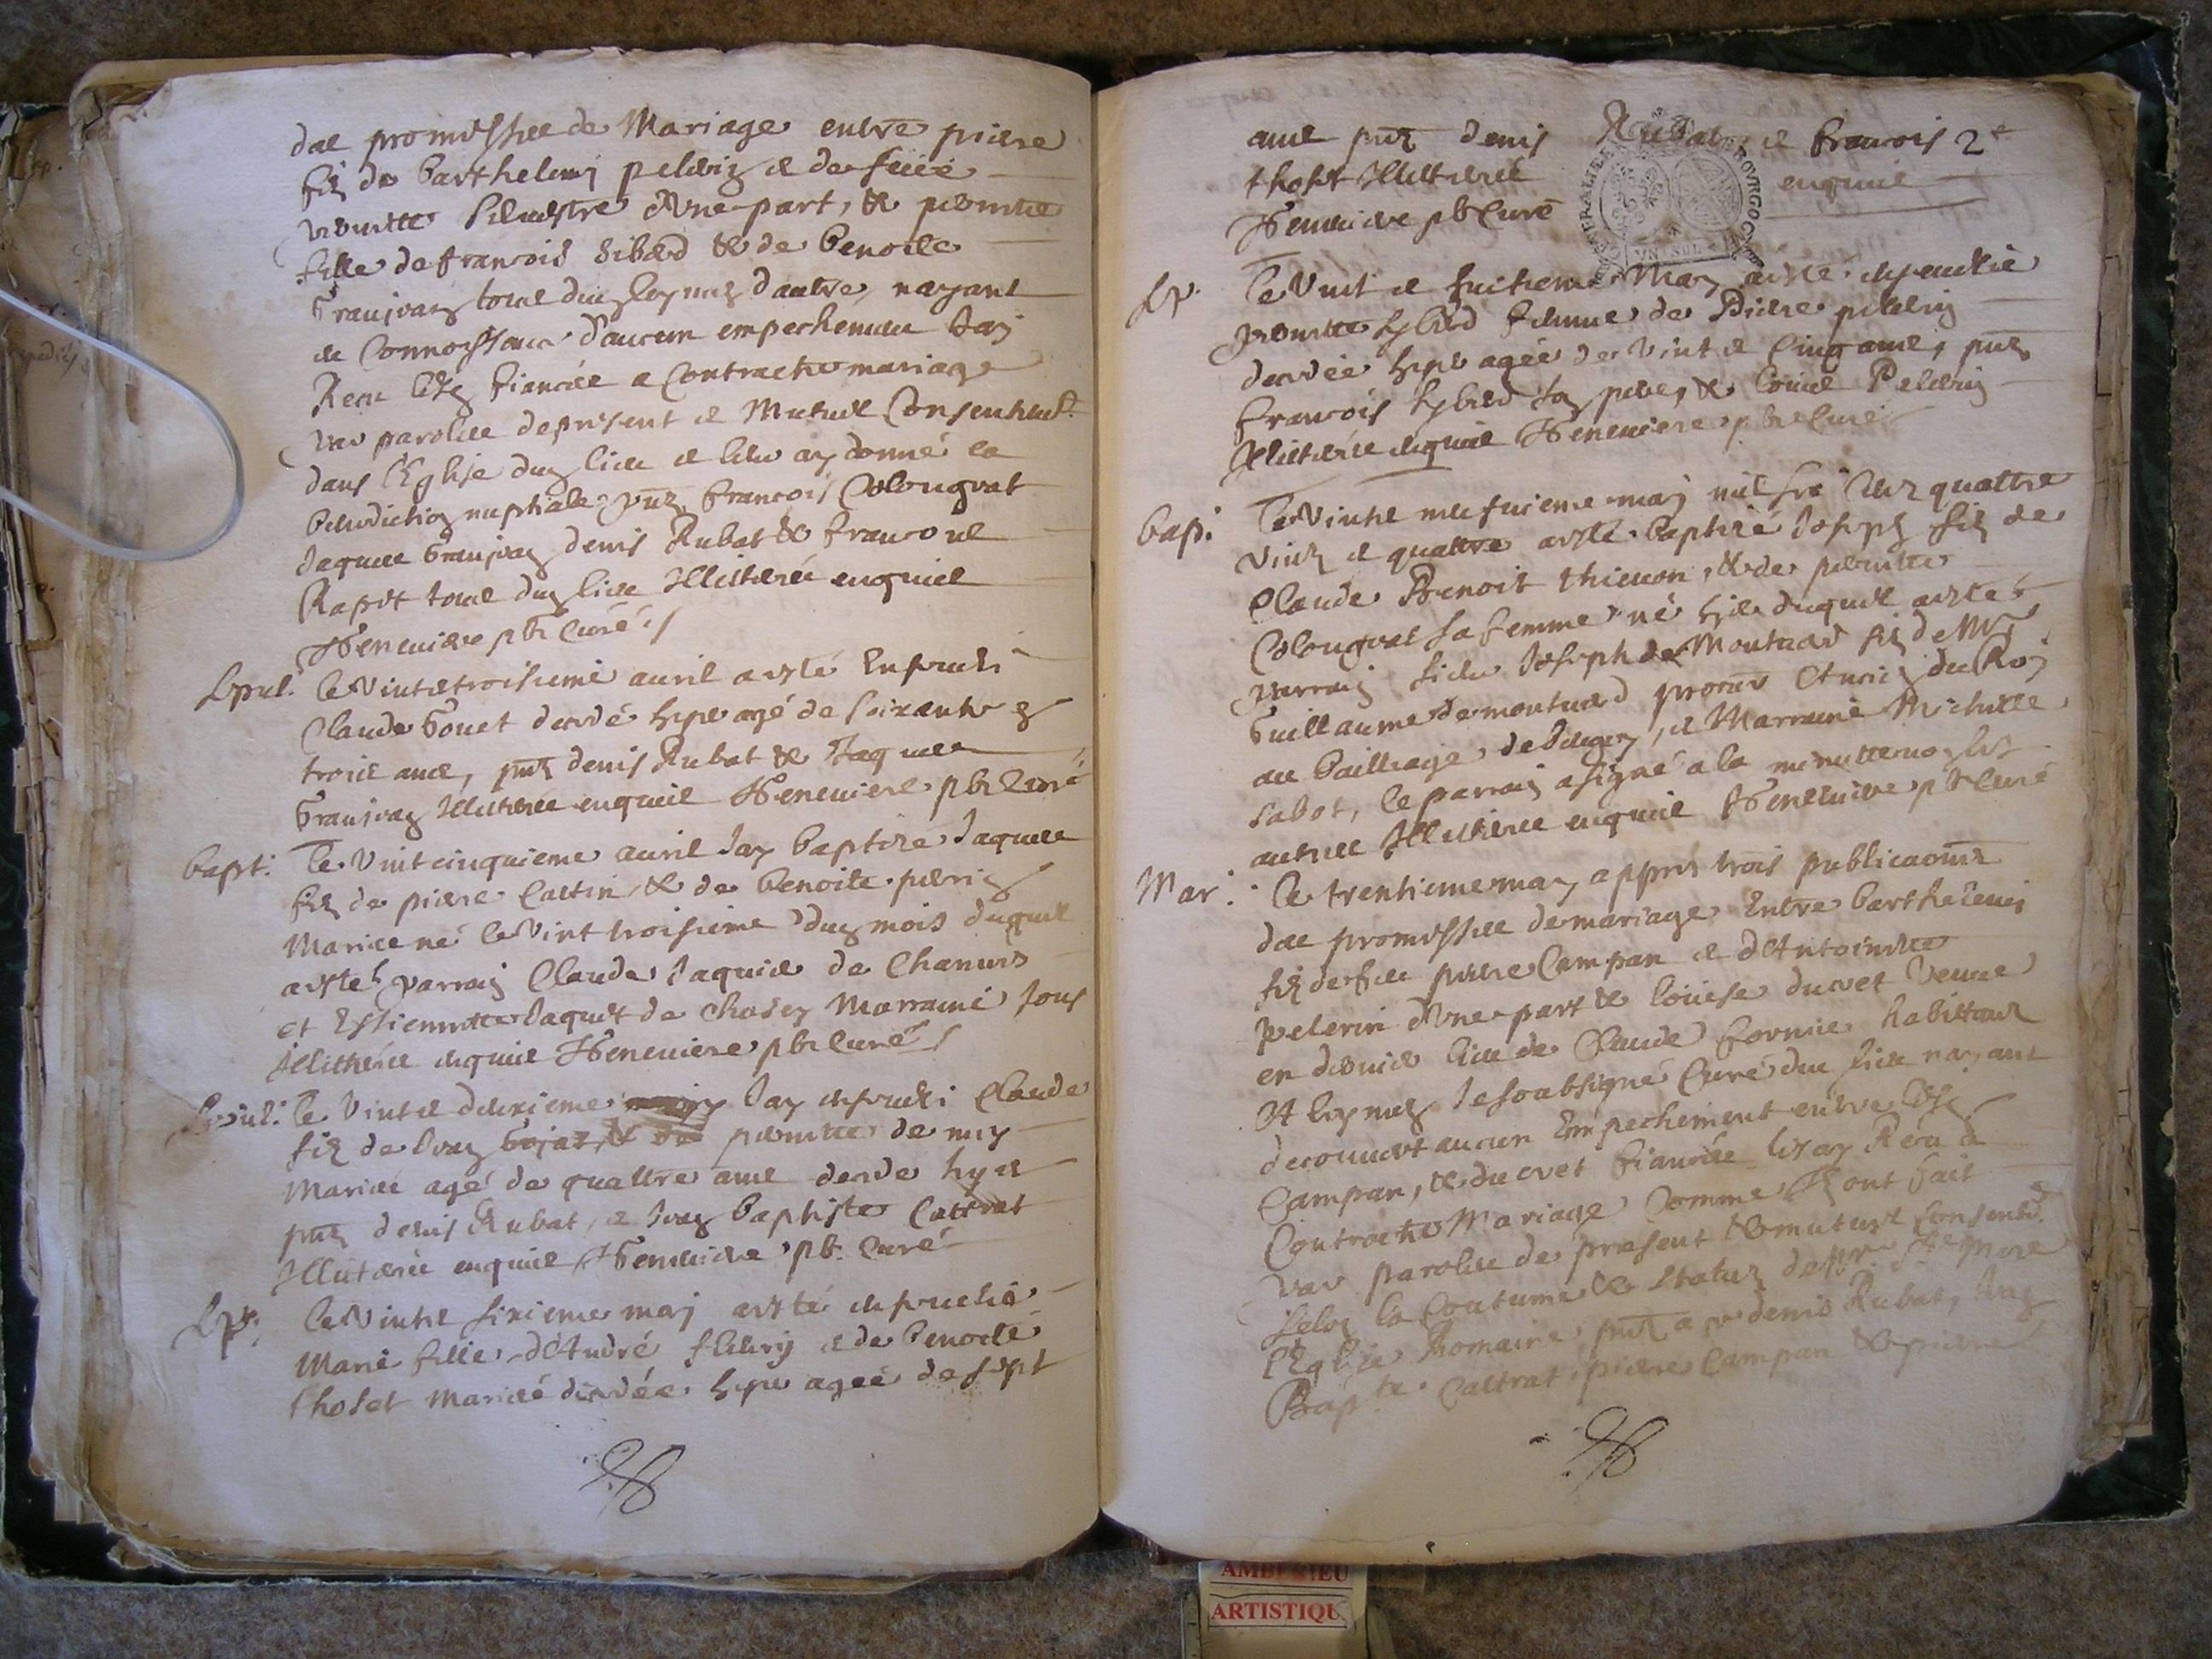 des promesses de Mariage entre piere
filz de Barthelemy pelerin et de feüe
pernette Silvestre d'Vne part, & pernette
fille de francois Sibert & de Benoite
Granjean tous dug leymen d'autre, nayant
eu Connoissance d'aucun empechement Jay
Receu lesd fiancés a Contracter mariage
par parolles de present et Mutuel Consentemt
dans l'Eglise dug lieu et leur ay donné la
benediction nuptiale pntz francois Colongeat
Jaques Granjean denis Rubat & francois
Rapet tous dug lieu Illitterés enquis
Genevière pbr Curé
Le Vint et troisieme avril a esté Enseveli
Claude Gouet decedé hyer agé de soixante &
trois ans, pntz denis Rubat & Jaques
Granjean Illitterés enquis Genevière pbr Curé
bapt. Le Vint cinquieme avril Jay baptizé Jaques
filz de piere Cattin, & de Benoite perrin
Mariés né le Vint troisieme dug mois duquel
a esté parrain Claude Jaquier de Chanves
et Estiennette Jaquet de Chosey Marraine tous
Illitterés enquis Genevière pbr Curé
Le Vint et deuxieme may Jay enseveli Claude
filz de Jean Gojat, & de pernette de
Mariés agé de quattre ans decedé hyer
pntz denis Rubat, et Jean Baptiste Cattrat
Illitterés enquis Genevière pb. Curé
Le Vint et sixieme maj a esté ensevelie
Marie fille d'André fleury et de Benoite
thoset Mariés decedée hyer agée de sept
ans pntz denis Rubat, et francois 2e
thoset Illitterés enquis
Genevière pbr Curé
VN SOL
Le Vint et huitieme May a esté ensevelie
pernette Sybert femme de Piere pelerin
decedée hyer agée de Vint et Cinq ans, pntz
francois Sybert son pere, & Louis Pelerin
Illitterés enquis Genevière pbr Curé
bap. Le Vint neufvieme maj mil six cens quattre
Vint et quattre a esté baptizé Joseph filz de
Claude Benoit thievon, & de pernette
Colongeat sa femme né hyer duquel a esté
parrain sieur Joseph de Montuerd filz de Mre
Guillaume de montuerd procur Ancien du Roy
au Bailliage de Bugey, et Marraine Michelle
Sabot, le parrain a signé a la minutte non les
autres Illitterés enquis Genevière pbr Curé
Mar. Le trentieme may appres trois publicaons
des promesses de mariage Entre barthelemy
filz de feu piere Campan et d'Antoinette
pelerin d'Vne part & Loüise ducret Veuve
en dernier lieu de Claude fornier habittans
A leymen Je soubsigné Curé du lieu nayant
decouvert aucun Empechement entre lesd
Campan, & ducret fiancés les ay Receu a
Contracter Mariage Comme Ilz ont fait
par parolles de present & mutuel Consentemt
selon la Coutume & Statuz de Nre Ste Mere
l'Eglise Romaine, pntz a ce denis Rubat, Jean
Bapte Cattrat, piere Campan & piere
AMBERIEU
ARTISTIQU